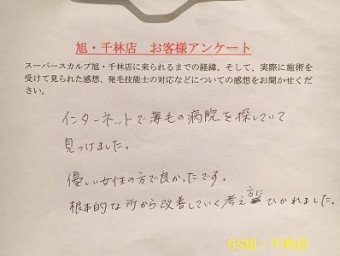 旭・千林店　お客様アンケート
スーパースカルプ旭・千林店に来られるまでの経緯、そして、実際に施術を
受けて見られた感想、発毛技能士の対応などについての感想をお聞かせくだ
さい。
インターネットで薄毛の病院を探していて
見つけました。
優しい女性の方で良かったです。
根本的な所から改善していく考え方にひかれました。
SS旭・千林店